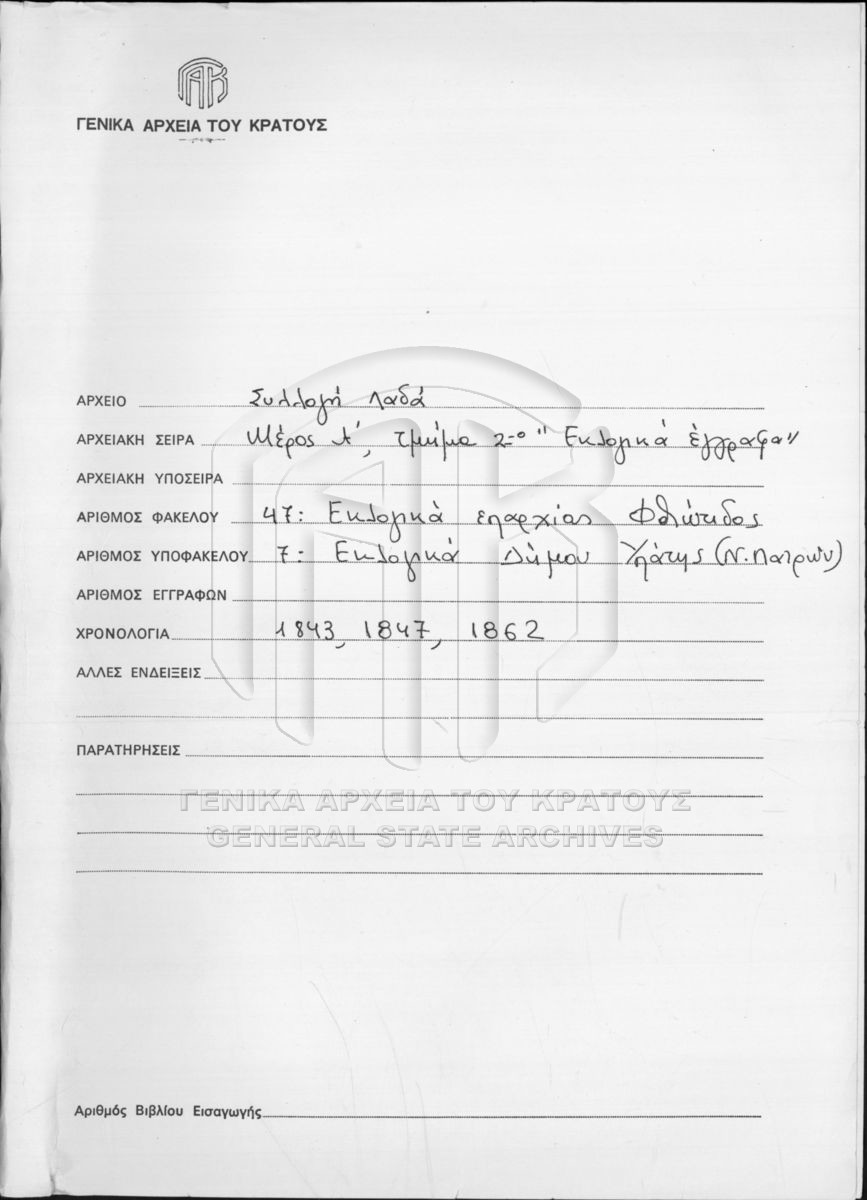 ΓΑΚ
ΓΕΝΙΚΑ ΑΡΧΕΙΑ ΤΟΥ ΚΡΑΤΟΥΣ
ΑΡΧΕΙΟ Συλλογή Λαδά
ΑΡΧΕΙΑΚΗ ΣΕΙΡΑ Μέρος Α', τμήμα 2-ο "Εκλογικά έγγραφα"
ΑΡΧΕΙΑΚΗ ΥΠΟΣΕΙΡΑ
ΑΡΙΘΜΟΣ ΦΑΚΕΛΟΥ 47: Εκλογικά επαρχίας Φθιώτιδος
ΑΡΙΘΜΟΣ ΥΠΟΦΑΚΕΛΟΥ 7: Εκλογικά Δήμου Υπάτης (Ν. Πατρών)
ΑΡΙΘΜΟΣ ΕΓΓΡΑΦΩΝ
ΧΡΟΝΟΛΟΓΙΑ 1843, 1847, 1862
ΑΛΛΕΣ ΕΝΔΕΙΞΕΙΣ
ΠΑΡΑΤΗΡΗΣΕΙΣ
ΓΕΝΙΚΑ ΑΡΧΕΙΑ ΤΟΥ ΚΡΑΤΟΥΣ
GENERAL STATE ARCHIVES
Αριθμός Βιβλίου Εισαγωγής